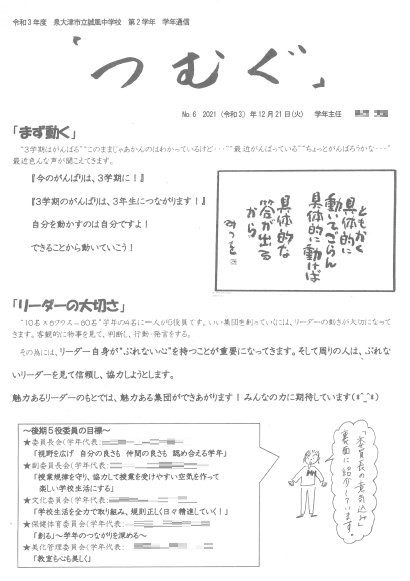 令和3年度 泉大津市立誠風中学校 第2学年 学年通信
「つむぐ」
No.6 2021(令和3)年12月21日(火) 学年主任
「まず動く」
“3学期はがんばる”“このままじゃあかんのはわかっているけど・・・”“最近がんばっている”“ちょっとがんばろうかな・・・”
最近色んな声が聞こえてきます。
『今のがんばりは、3学期に!』
『3学期のがんばりは、3年生につながります!』
自分を動かすのは自分ですよ!
できることから動いていこう!
ともかく
具体的に
動いてごらん
具体的に動けば
具体的な
答が出る
から
みつを
「リーダーの大切さ」
“10名×8クラス=80名”学年の4名に一人が5役員です。いい集団を創っていくには、リーダーの動きが大切になって
きます。客観的に物事を見て、判断し、行動・発言をする。
その為には、リーダー自身が“ぶれない心”を持つことが重要になってきます。そして周りの人は、ぶれな
いリーダーを見て信頼し、協力しようとします。
魅力あるリーダーのもとでは、魅力ある集団ができあがります!みんなの力に期待しています(*^_^*)
~後期5役委員の目標~
★委員長会(学年代表:
「視野を広げ 自分の良さも 仲間の良さも 認め合える学年」
★副委員長会(学年代表:
「授業規律を守り、協力して授業を受けやすい空気を作って
楽しい学校生活にする」
★文化委員会(学年代表:
「学校生活を全力で取り組み、規則正しく日々精進していく!」
★保健体育委員会(学年代表:
「創る」~学年のつながりを深める~
★美化管理委員会(学年代表:
「教室も心も美しく」
「委員長の意気込み」
裏面に紹介しています。